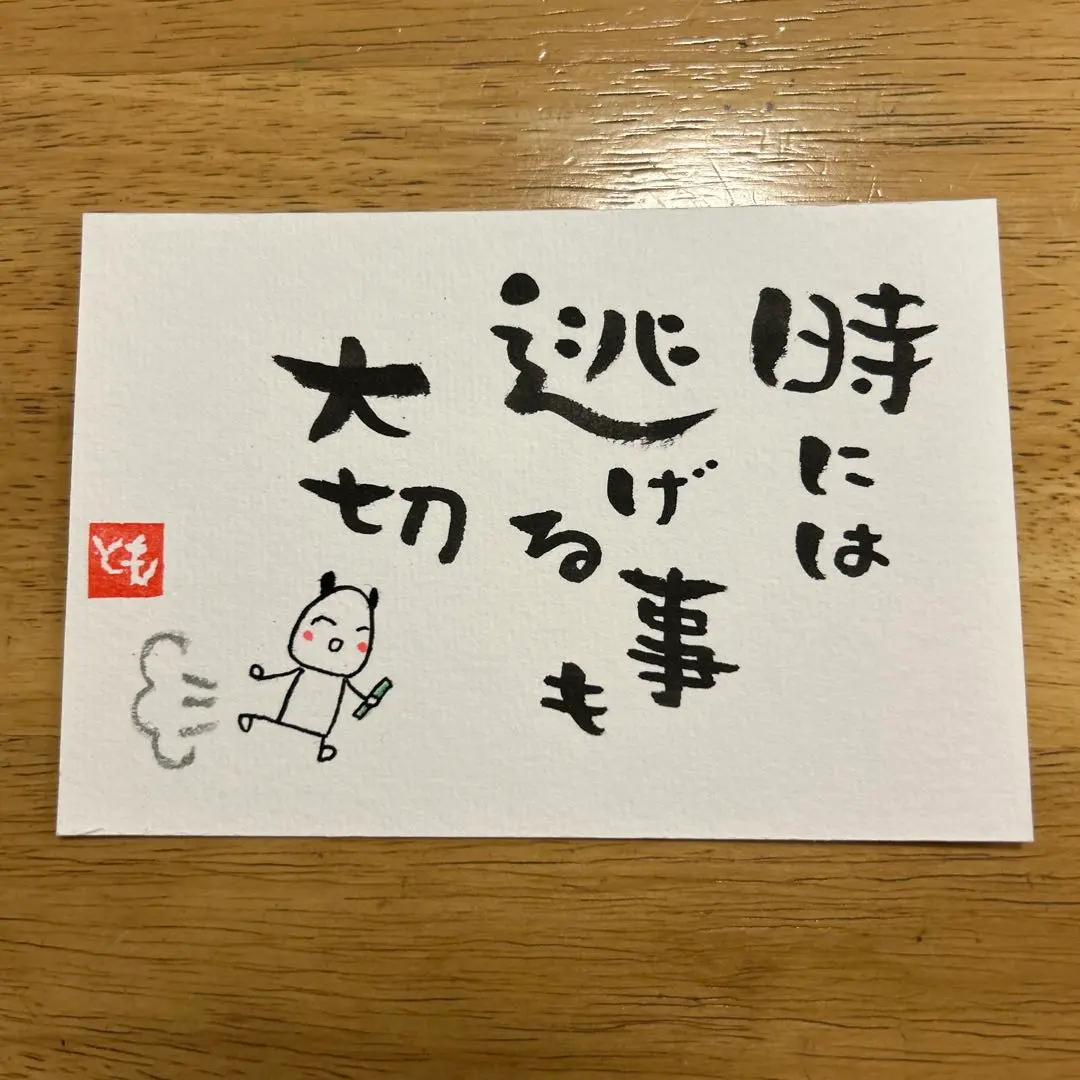 時には
逃げる事も
大切
とも